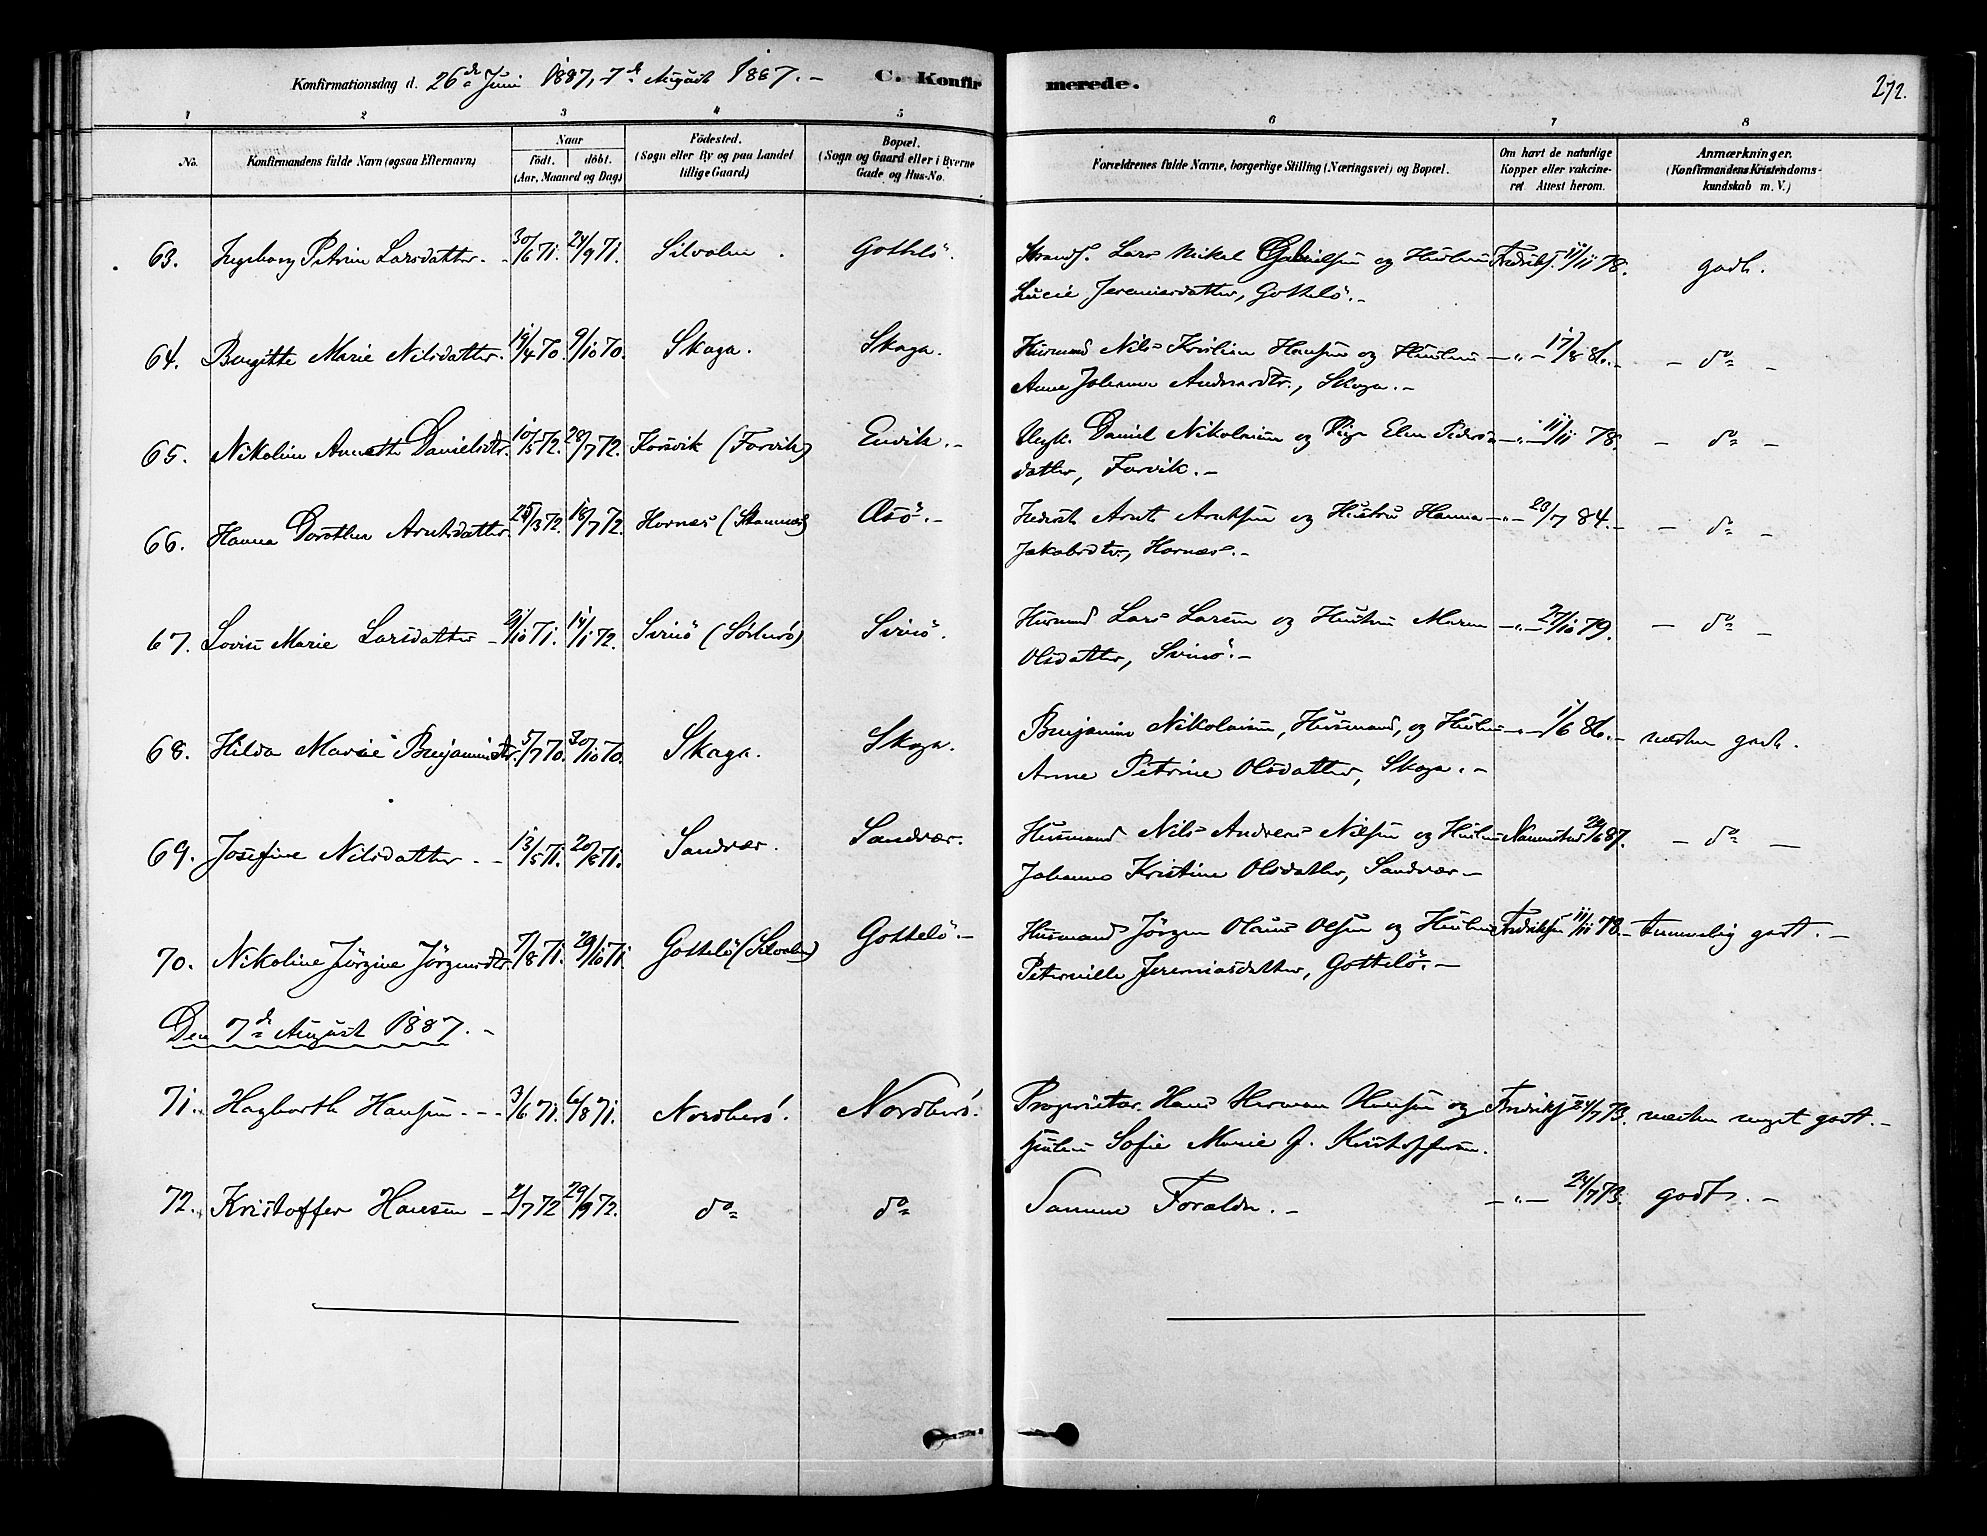 Konfirmationsdag d. 26de Juni 1887, 7de August 1887. – C. Konfirmerede. 272.
1 2 3 4 5 6 7 8
No. Konfirmandens fulde Navn (ogsaa Efternavn) Naar født. døbt. (Aar, Maaned og Dag) Födested. (Sogn eller By og paa Landet tillige Gaard) Bopæl. (Sogn og Gaard eller i Byerne Gade og Hus-No. Forældrenes fulde Navne, borgerlige Stilling (Næringsvei) og Bopæl. Om havt de naturlige Kopper eller vakcineret. Attest herom. Anmærkninger. (Konfirmandens Kristendomskundskab m. V.)
63. Ingeborg Petrine Larsdatter. 30/6 71. 24/9 71. Silvalen. Gottelö. Strands. Lars Mikal Gabrielsen og Hustru Fredriks. 11/11 78. godt.
Lucie Jeremiasdatter, Gottelö. –
64. Bergitte Marie Nilsdatter. 19/4 70. 9/10 70. Skaga. Skaga. Husmand Nils Kristian Hansen og Hustru – " – 17/8 86. – – do –
Anne Johanna Andersdtr., Skaga. –
65. Nikoline Annette Danielsdtr. 10/5 72. 28/7 72. Korsvik (Forvik) Envik. – Ungk. Daniel Nikolaisen og Pige Elen Peders – " – 11/11 78. – do –
datter, Forvik. –
66. Hanna Dorothea Arntsdatter. 25/3 72. 18/7 72. Hornæs (Stamnæs) Œsö. – Inderst Arnt Arntsen og Hustru Hanna – " – 23/7 84. – – do –
Jakobsdtr., Hornæs. –
67. Lovise Marie Larsdatter – 21/10 71. 14/1 72. Svinö (Sörherö) Svinö. Husmand Lars Larsen og Hustru Maren – " – 27/10 79. – do –
Olsdatter, Svinö. –
68. Hilda Marie Benjaminsdtr. 5/7 70. 30/10 70. Skaga. Skaga. Benjamin Nikolaisen, Husmand, og Hustru – " – 1/6 86. – næsten godt.
Anne Petrine Olsdatter, Skaga. –
69. Josefine Nilsdatter – – 13/5 71. 20/8 71. Sandvær. Sandvær. Husmand Nils Andreas Nilsen og Hustru 87. – do –
Johanna Kristine Olsdatter, Sandvær –
70. Nikoline Jörgine Jörgensdtr. 7/8 71. 29/10 71. Gottelö (Silvalen) Gottelö. – Husmand Jörgen Olaus Olsen og Hustru Fredriksen 11/11 78. – temmelig godt. –
Peternille Jeremiasdatter, Gottelö. –
Den 7de August 1887. –
71. Hagbarth Hansen. – – 3/6 71. 6/8 71. Nordherö. Nordherö. Proprietær Hans Herman Hansen og Fredriks 24/7 73. næsten meget godt. –
Hustru Sofie Marie J. Kristoffersen.
72. Kristoffer Hansen – 2/7 72 29/9 72. do do Samme Forældre. – – " – 24/7 73. godt. –